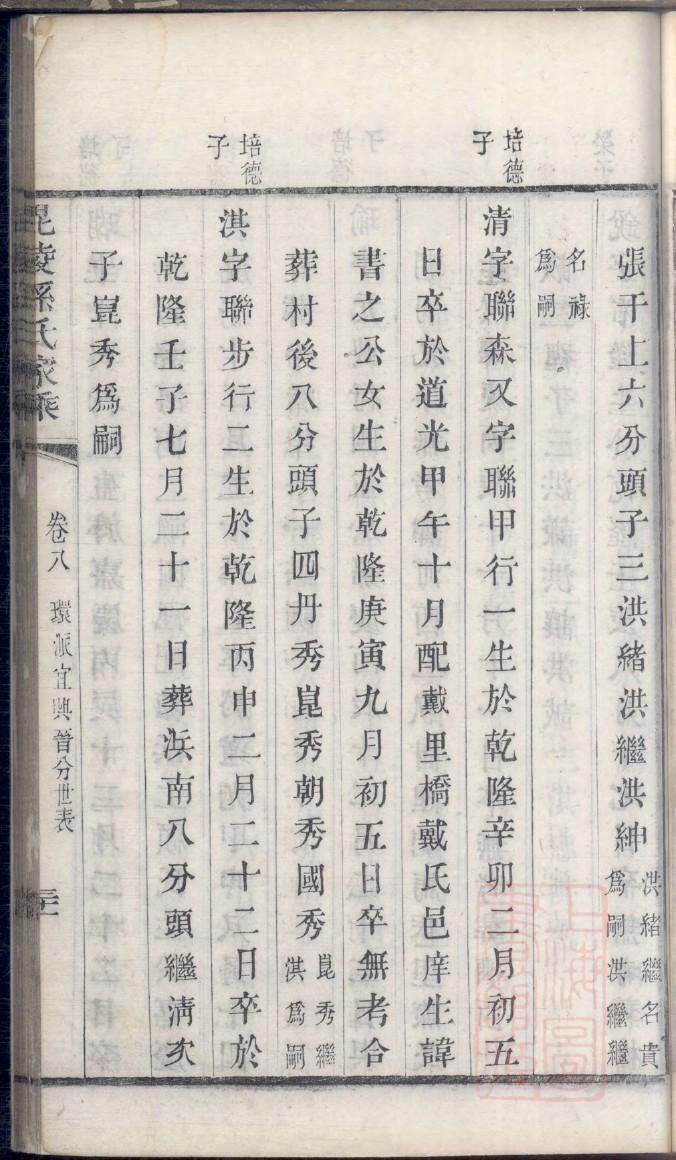 張干上六分頭子三洪緒洪繼洪紳洪緒繼名貴爲嗣洪繼繼
名祿爲嗣
培德子
清字聯森又字聯甲行一生於乾隆辛卯二月初五
日卒於道光甲午十月配戴里橋戴氏邑庠生諱
書之公女生於乾隆庚寅九月初五日卒無考合
葬村後八分頭子四丹秀崑秀朝秀國秀崑秀繼淇爲嗣
培德子
淇字聯步行二生於乾隆丙申二月二十二日卒於
乾隆壬子七月二十一日葬浜南八分頭繼淸次
子崑秀爲嗣
毘陵孫氏家乘
卷八 環派宜興晉分世表